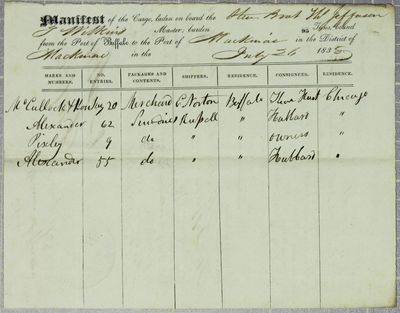 Manifest of the Cargo, laden on board the Stm Boat Th Jefferson
T Wilkins Master, burden 95 Tons, bound
from the Port of Buffalo to the Port of Mackinac in the District of
Mackinac in the July 26 1835
MARKS AND NUMBERS, NO. ENTRIES, PACKAGES AND CONTENTS, SHIPPERS, RESIDENCE, CONSIGNEES, RESIDENCE.
20 Merchand C. Norton Buffalo Hunt Chicago
Alexander 62 Sundries Russell " Hubbard "
Pixley 9 do " " owners "
Alexander 55 do " " Hubbard "